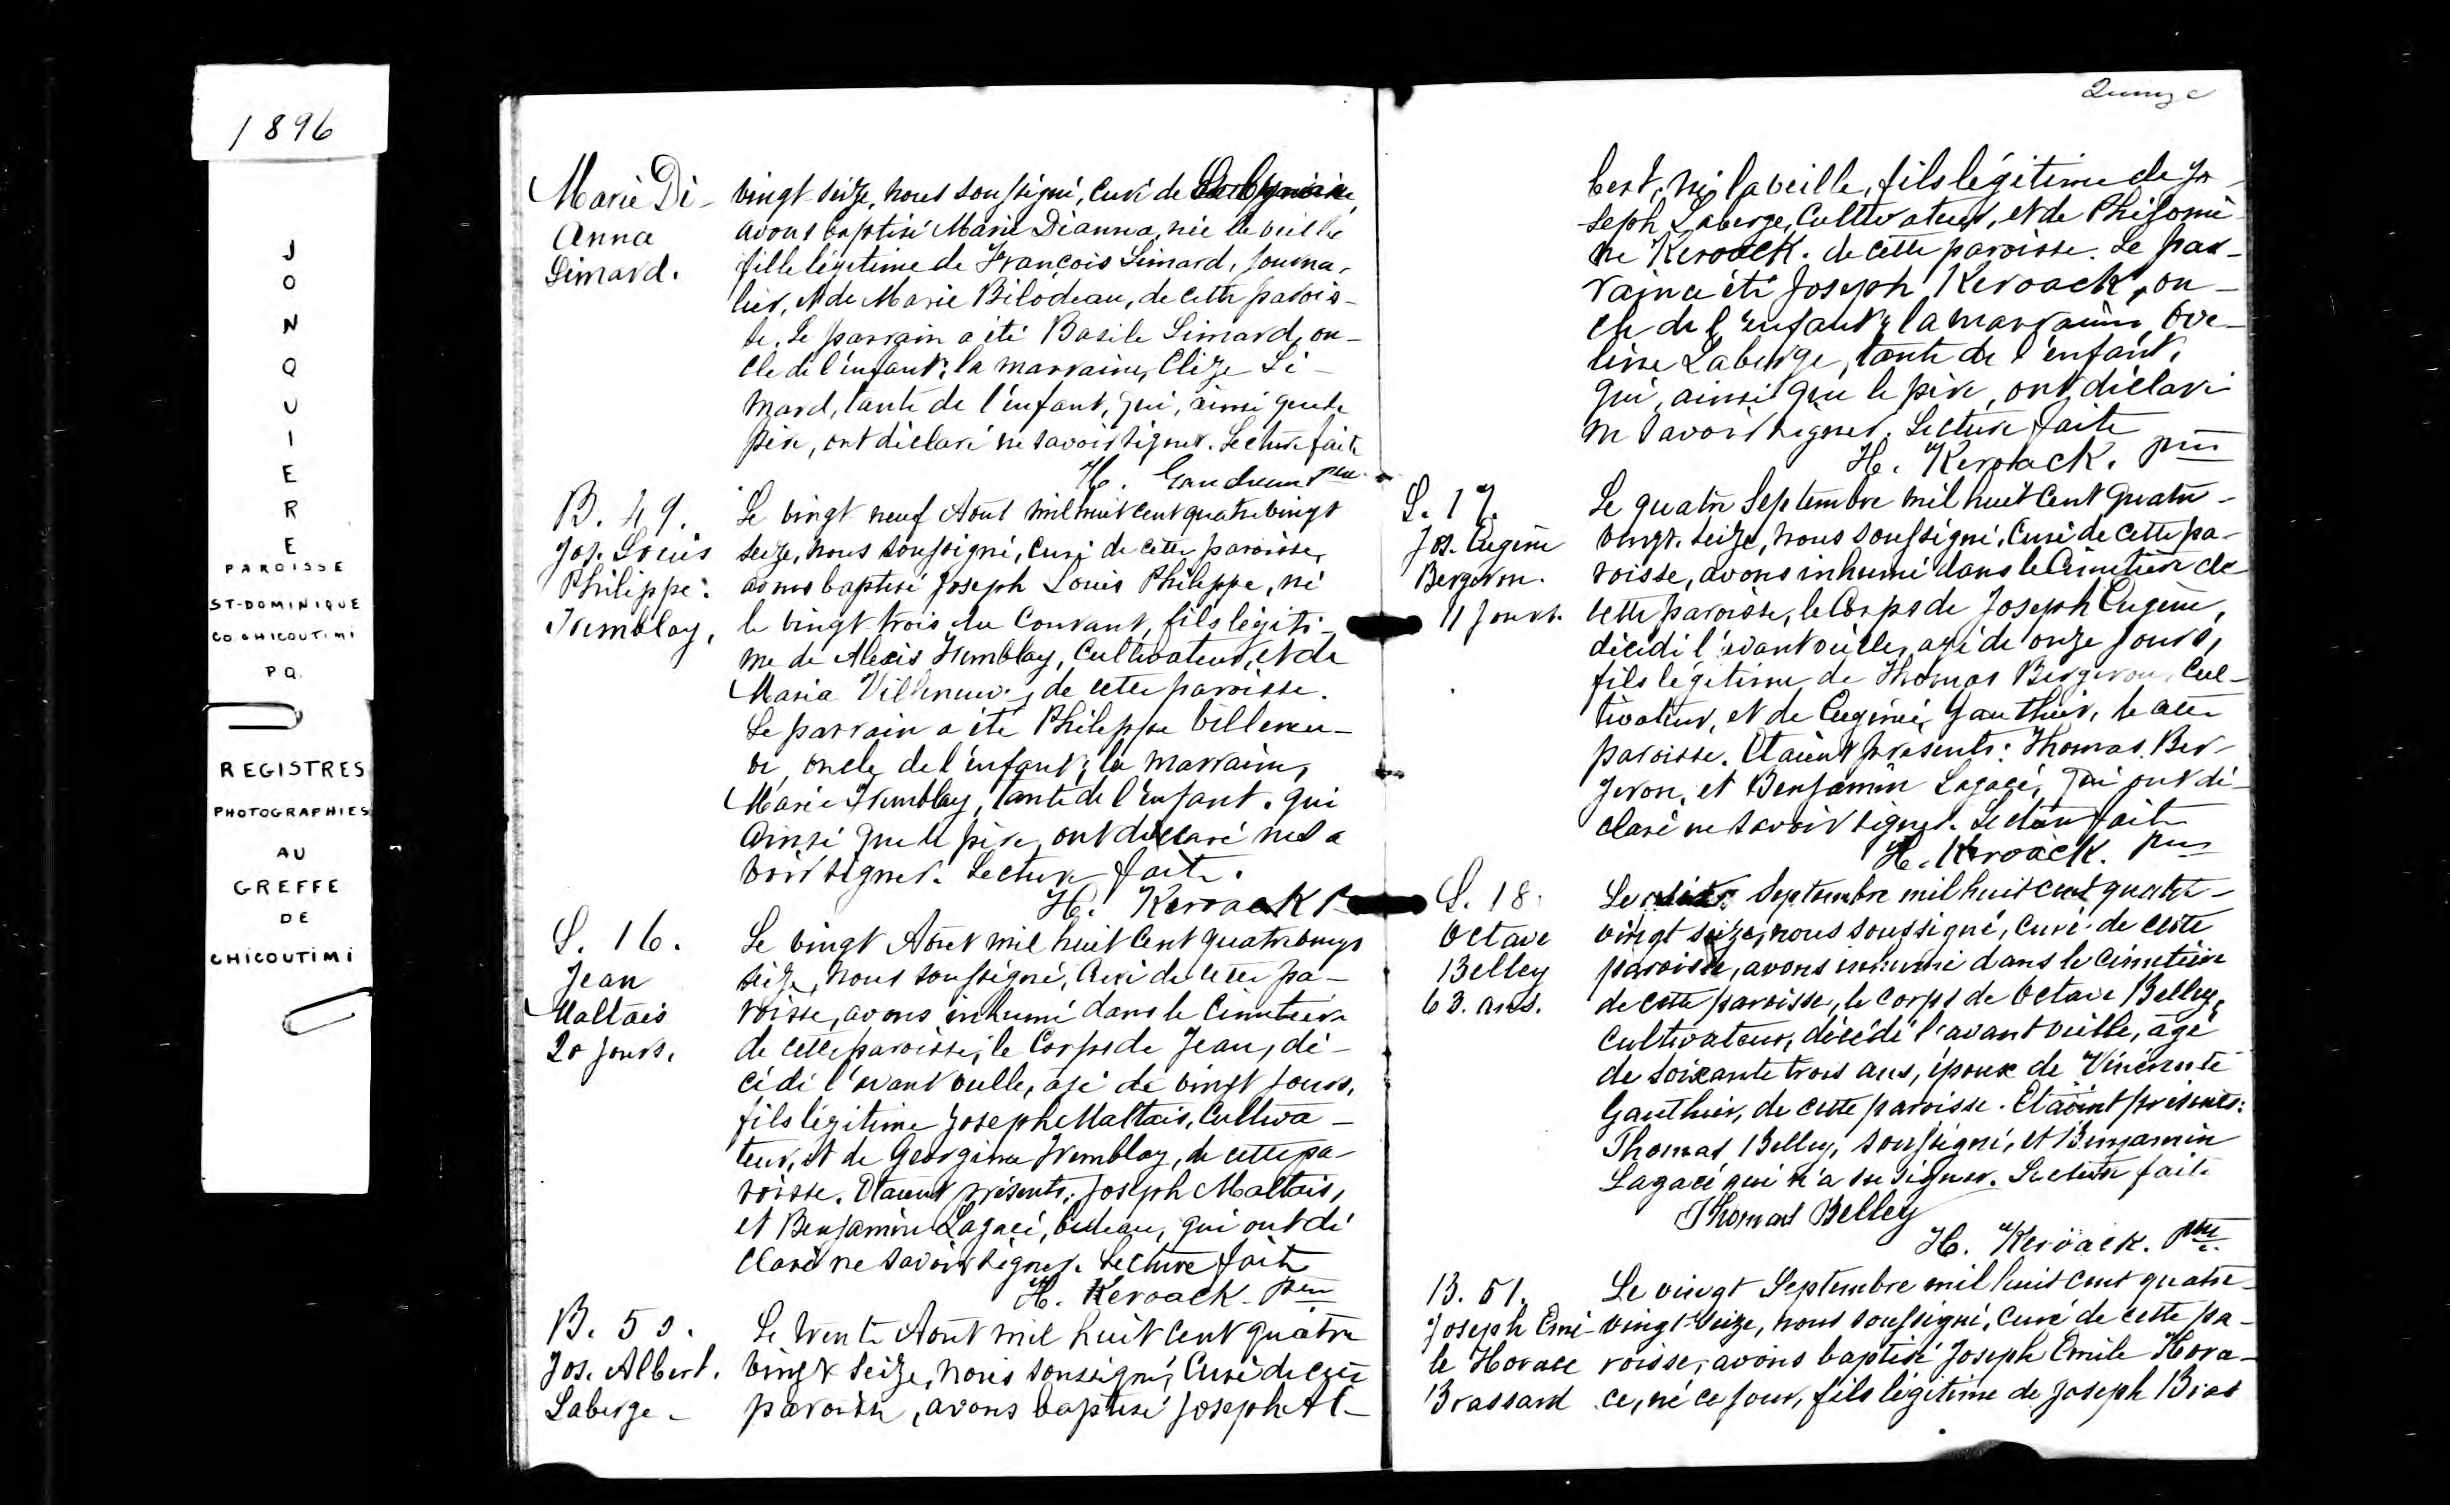 1896
JONQUIERE
PAROISSE
ST-DOMINIQUE
CO. CHICOUTIMI
P.Q.
REGISTRES
PHOTOGRAPHIES
AU
GREFFE
DE
CHICOUTIMI
Marie Di-
Anna
Simard.
vingt-seize, nous soussigné, curé de
avons baptisé Marie Dianna, née la veille
fille légitime de François Simard, journa-
lier, et de Marie Bilodeau, de cette parois-
se. Le parrain a été Basile Simard, on-
cle de l'enfant; la marraine, Elize Si-
mard, tante de l'enfant, qui, ainsi que le
père, ont déclaré ne savoir signer. Lecture faite
H. Gaudreau ptre
B. 49.
Jos. Louis
Philippe:
Tremblay,
Le vingt neuf Aout mil huit cent quatre vingt
seize, nous soussigné, curé de cette paroisse,
avons baptisé Joseph Louis Philippe, né
le vingt trois du courant, fils légiti-
me de Alexis Tremblay, cultivateur, et de
Maria Villeneuve, de cette paroisse.
Le parrain a été Philippe Villeneu-
ve, oncle de l'enfant; la marraine,
Marie Tremblay, tante de l'enfant. qui
ainsi que le père, ont déclaré ne sa
voir signer. Lecture faite.
H. Keroack
S. 16.
Jean
Maltais
20 jours.
Le vingt Aout mil huit cent quatre vingt
seize, nous soussigné, curé de cette pa-
roisse, avons inhumé dans le cimetière
de cette paroisse, le corps de Jean, dé-
cédé l'avant veille, agé de vingt jours,
fils légitime Joseph Maltais, cultiva-
teur, et de Georgina Tremblay, de cette pa-
roisse. Etaient présents: Joseph Maltais,
et Benjamin Lagacé, bedeau, qui ont dé
claré ne savoir signer. Lecture faite
H. Keroack. ptre
B. 50.
Jos. Albert.
Laberge-
Le trente Aout mil huit cent quatre
vingt seize, nous soussigné, curé de cette
paroisse, avons baptisé Joseph Al-
Quinze
bert, né la veille, fils légitime de Jo-
seph Laberge, cultivateur, et de Philomè-
ne Keroack. de cette paroisse. Le par-
rain a été Joseph Keroack, on-
cle de l'enfant; la marraine,
Laberge, tante de l'enfant,
qui, ainsi que le père, ont déclaré
ne savoir signer. Lecture faite
H. Keroack. ptre
S. 17.
Jos. Eugène
Bergeron.
11 jours.
Le quatre Septembre mil huit cent quatre-
vingt. seize, nous soussigné, curé de cette pa-
roisse, avons inhumé dans le cimetière de
cette paroisse, le corps de Joseph Eugène,
décédé l'avant veille, agé de onze jours,
fils légitime de Thomas Bergeron, cul-
tivateur, et de Eugénie Gauthier, de cette
paroisse. Etaient présents: Thomas Ber-
geron, et Benjamin Lagacé, qui ont dé-
claré ne savoir signer. Lecture faite
H. Keroack. ptre
S. 18.
Octave
Belley
63. ans.
Le Septembre mil huit cent quatre-
vingt seize, nous soussigné, curé de cette
paroisse, avons inhumé dans le cimetière
de cette paroisse, le corps de Octave Belley,
cultivateur, décédé l'avant veille, agé
de soixante trois ans, époux de
Gauthier, de cette paroisse. Etaient présents:
Thomas Belley, soussigné, et Benjamin
Lagacé qui n'a su signer. Lecture faite
Thomas Belley
H. Keroack. ptre
B. 51.
Joseph Emi-
le Horace
Brassard
Le vingt Septembre mil huit cent quatre
vingt-seize, nous soussigné, curé de cette pa-
roisse, avons baptisé Joseph Emile Hora-
ce, né ce jour, fils légitime de Joseph Bras